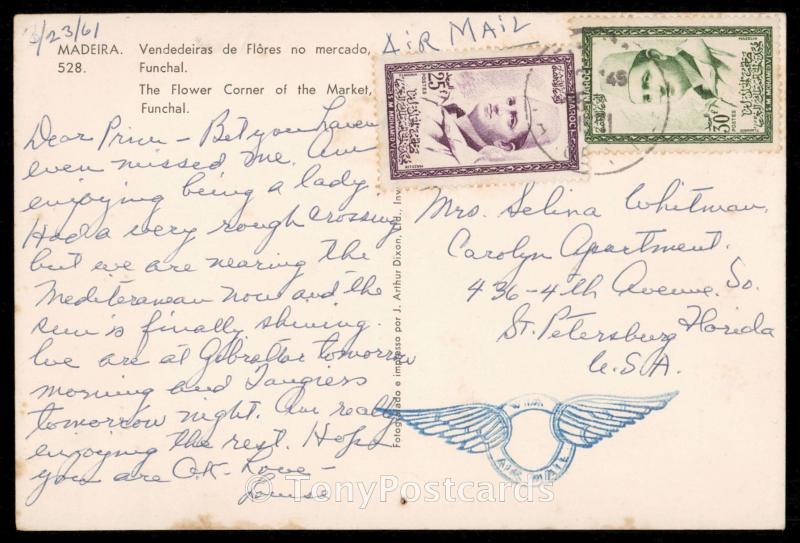 3/23/61
MADEIRA. Vendedeiras de Flôres no mercado,
528. Funchal.
The Flower Corner of the Market,
Funchal.
Dear Prin - Bet you haven
even missed me. Am
enjoying being a lady
Had a very rough crossing
but we are nearing the
Mediteranean now and the
sun is finally shining.
We are at Gibraltar tomorrow
morning and Tangiers
tomorrow night. Am really
enjoying the rest. Hope
you are O.K - Love -
Louise
AIR MAIL
25
POSTES
MAROC
S.M. MOHAMMED V
MAZELIN
30
POSTES
MAROC
S.M. MOHAMMED V
MAZELIN
45
Mrs. Selina Whitman
Carolyn Apartment.
436-4th Avenue. So.
St. Petersburg Florida
U.S.A.
Fotografado e impresso por J. Arthur Dixon, Ltd., Inv
VIA
AIR MAIL
© TonyPostcards